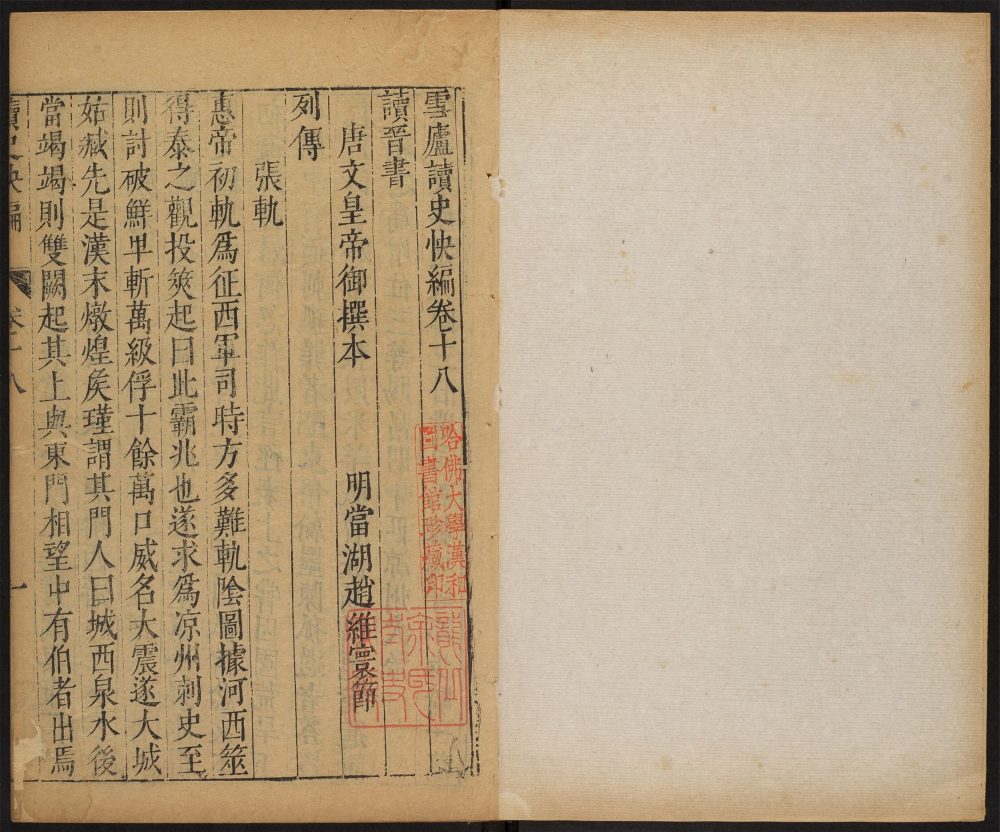 雪廬讀史快編卷十八
讀晉書
唐文皇帝御撰本 明當湖趙維寰節
列傳
張軌
惠帝初軌爲征西軍司時方多難軌陰圖據河西筮
得泰之觀投筴起曰此霸兆也遂求爲凉州刺史至
則討破鮮卑斬萬級俘十餘萬口威名大震遂大城
姑臧先是漢末燉煌矦瑾謂其門人曰城西泉水後
當竭竭則雙闕起其上與東門相望中有伯者出焉
讀史快編
卷十八
一
哈佛大學漢和
圖書館珍藏印